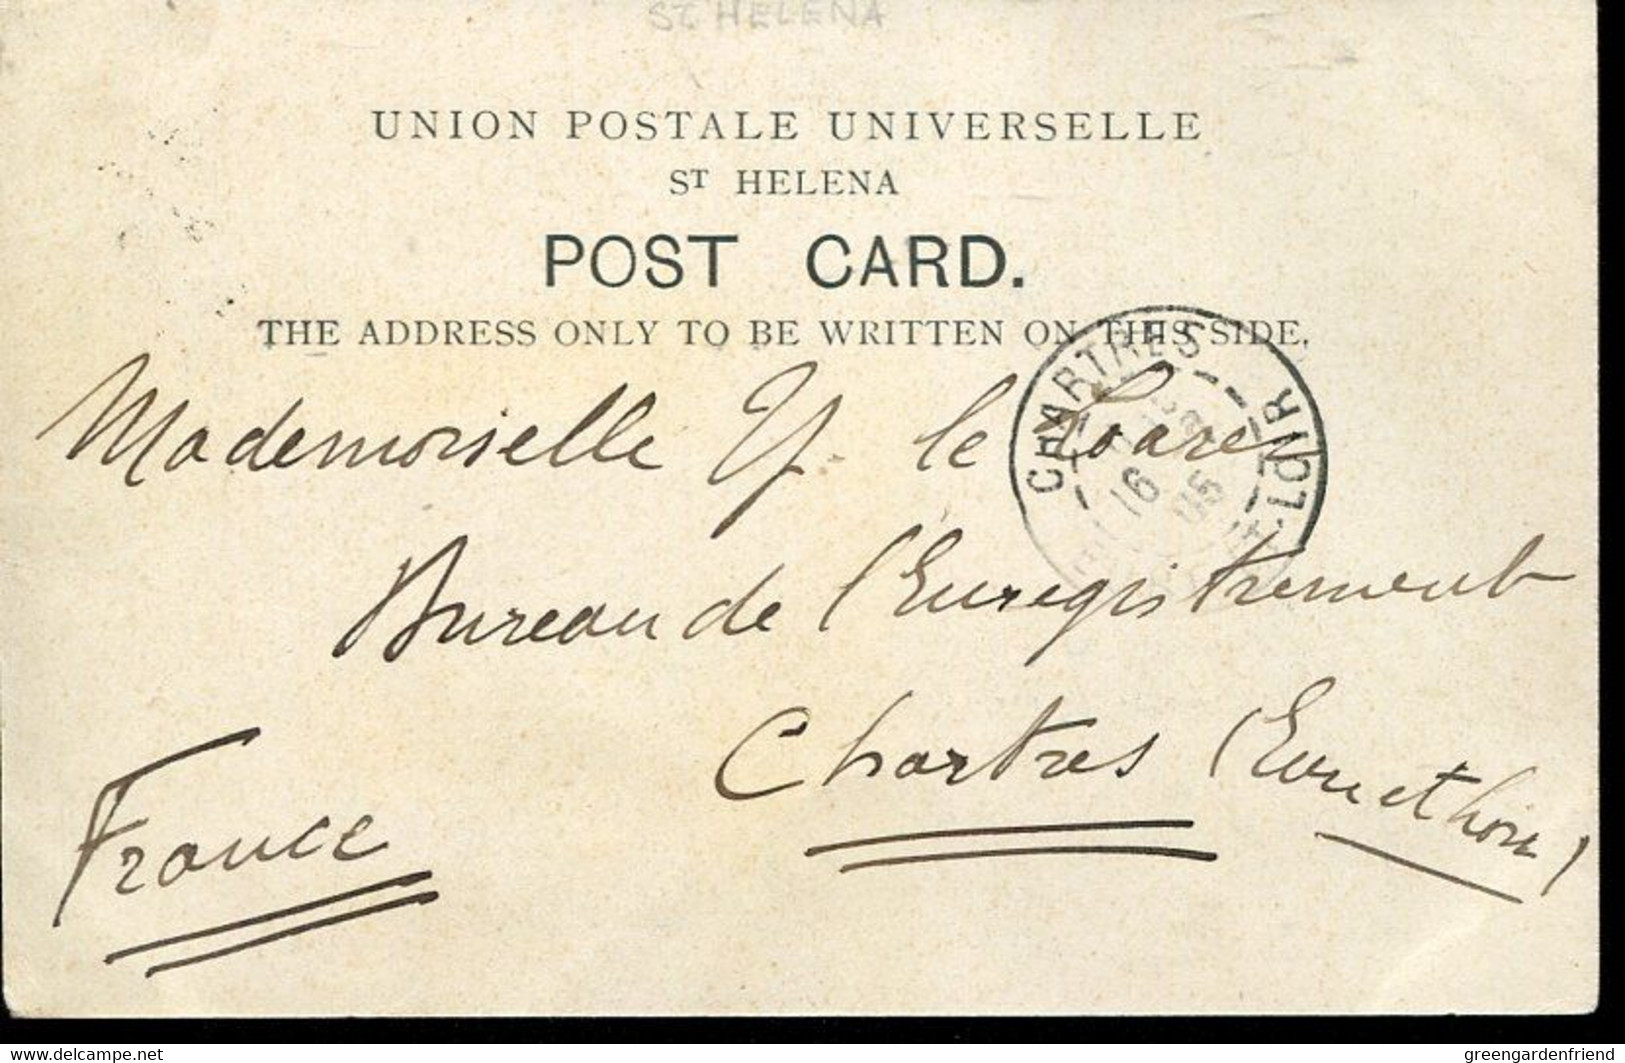 ST HELENA
UNION POSTALE UNIVERSELLE
ST HELENA
POST CARD.
THE ADDRESS ONLY TO BE WRITTEN ON THIS SIDE.
CHARTRES
16
05
LOIR
Mademoiselle Y. le
Bureau de l'Enregistrement
Chartres (Eure et Loir)
France
www.delcampe.net
greengardenfriend